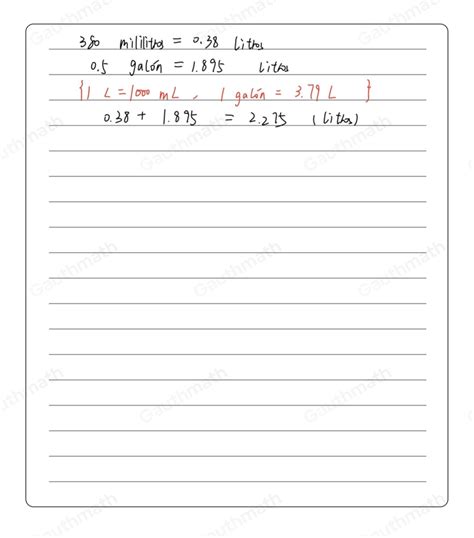 380 mililitros = 0.38 Litros
0.5 galón = 1.895 Litros
{1 L = 1000 mL, 1 galón = 3.79 L }
0.38 + 1.895 = 2.275 (Litros)
Gauthmath